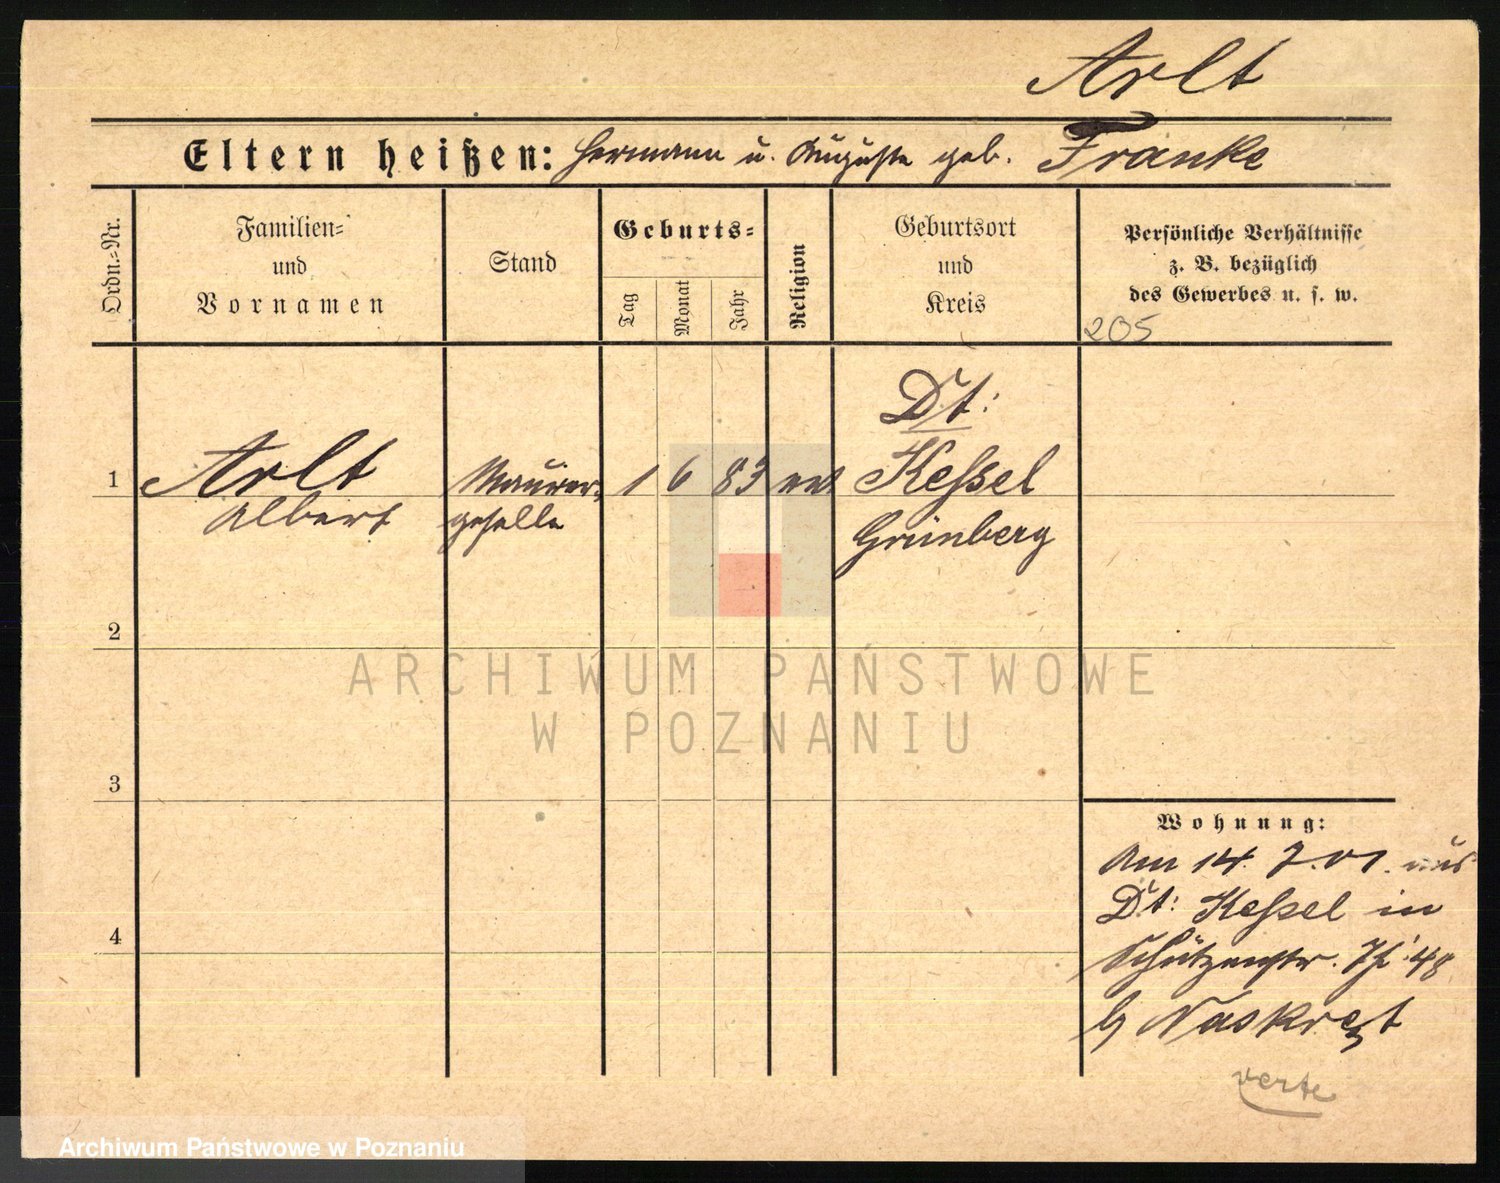 Arlt
Eltern heißen: Hermann u. Auguste geb. Franke
Ordn.-Nr.
Familien-
und
Vornamen
Stand
Geburts-
Tag
Monat
Jahr
Religion
Geburtsort
und
Kreis
Persönliche Verhältnisse
z. B. bezüglich
des Gewerbes u. s. w.
205
1
Arlt
Albert
Maurer-
geselle
1 6 83
Dt:
Kessel
Grünberg
2
3
4
Wohnung:
Am 14. 7. 01. aus
Dt: Kessel in
Schützenstr. 48
b/ Naskręt
verte
ARCHIWUM PAŃSTWOWE
W POZNANIU
Archiwum Państwowe w Poznaniu